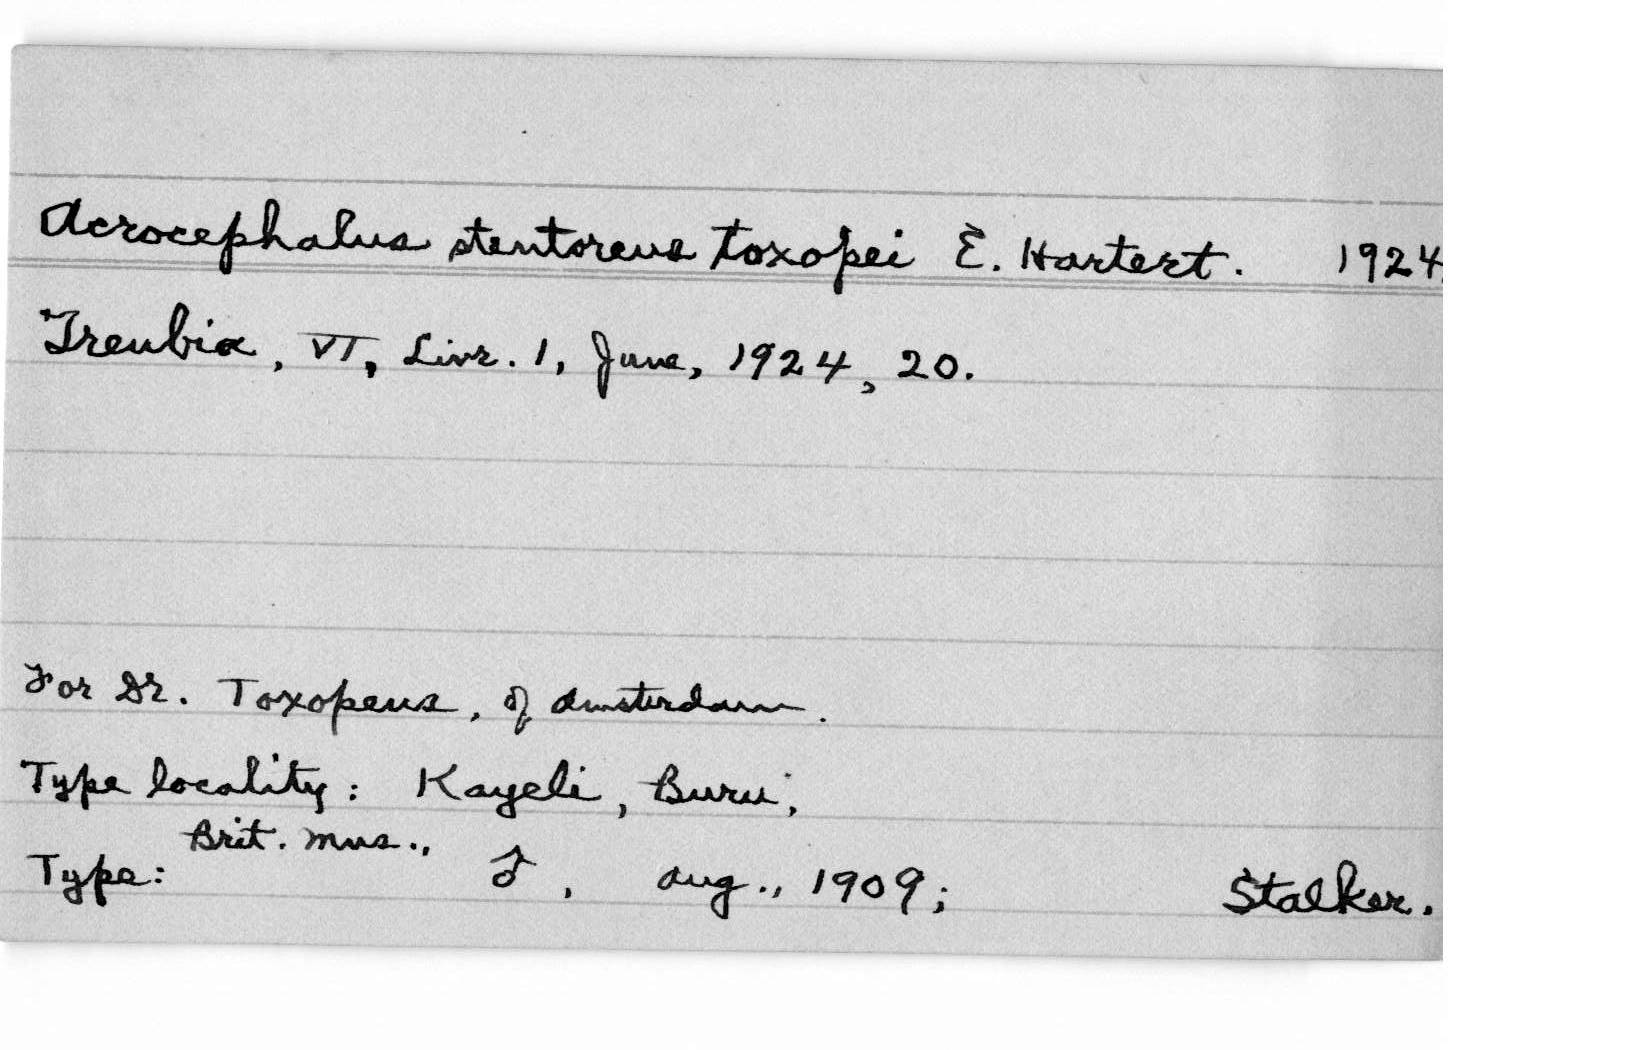 Acrocephalus stentoreus toxopei E. Hartert. 1924.
Treubia, VI, Livr. 1, June, 1924, 20.
For Dr. Toxopeus, of Amsterdam.
Type locality: Kayeli, Buru;
Brit. Mus.,
Type: ♂, Aug., 1909; Stalker.